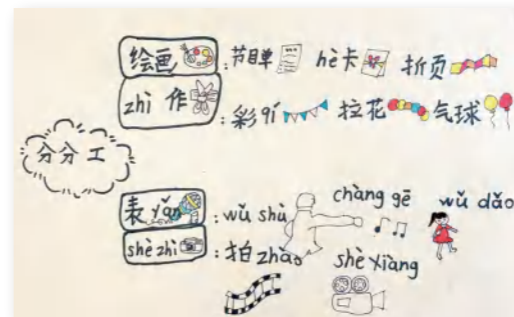 绘画:节目单 hè卡 折页
zhì 作:彩qí 拉花 气球
分分工
表yǎn:wǔ shù chàng gē wǔ dǎo
shè zhì:拍zhào shè xiàng